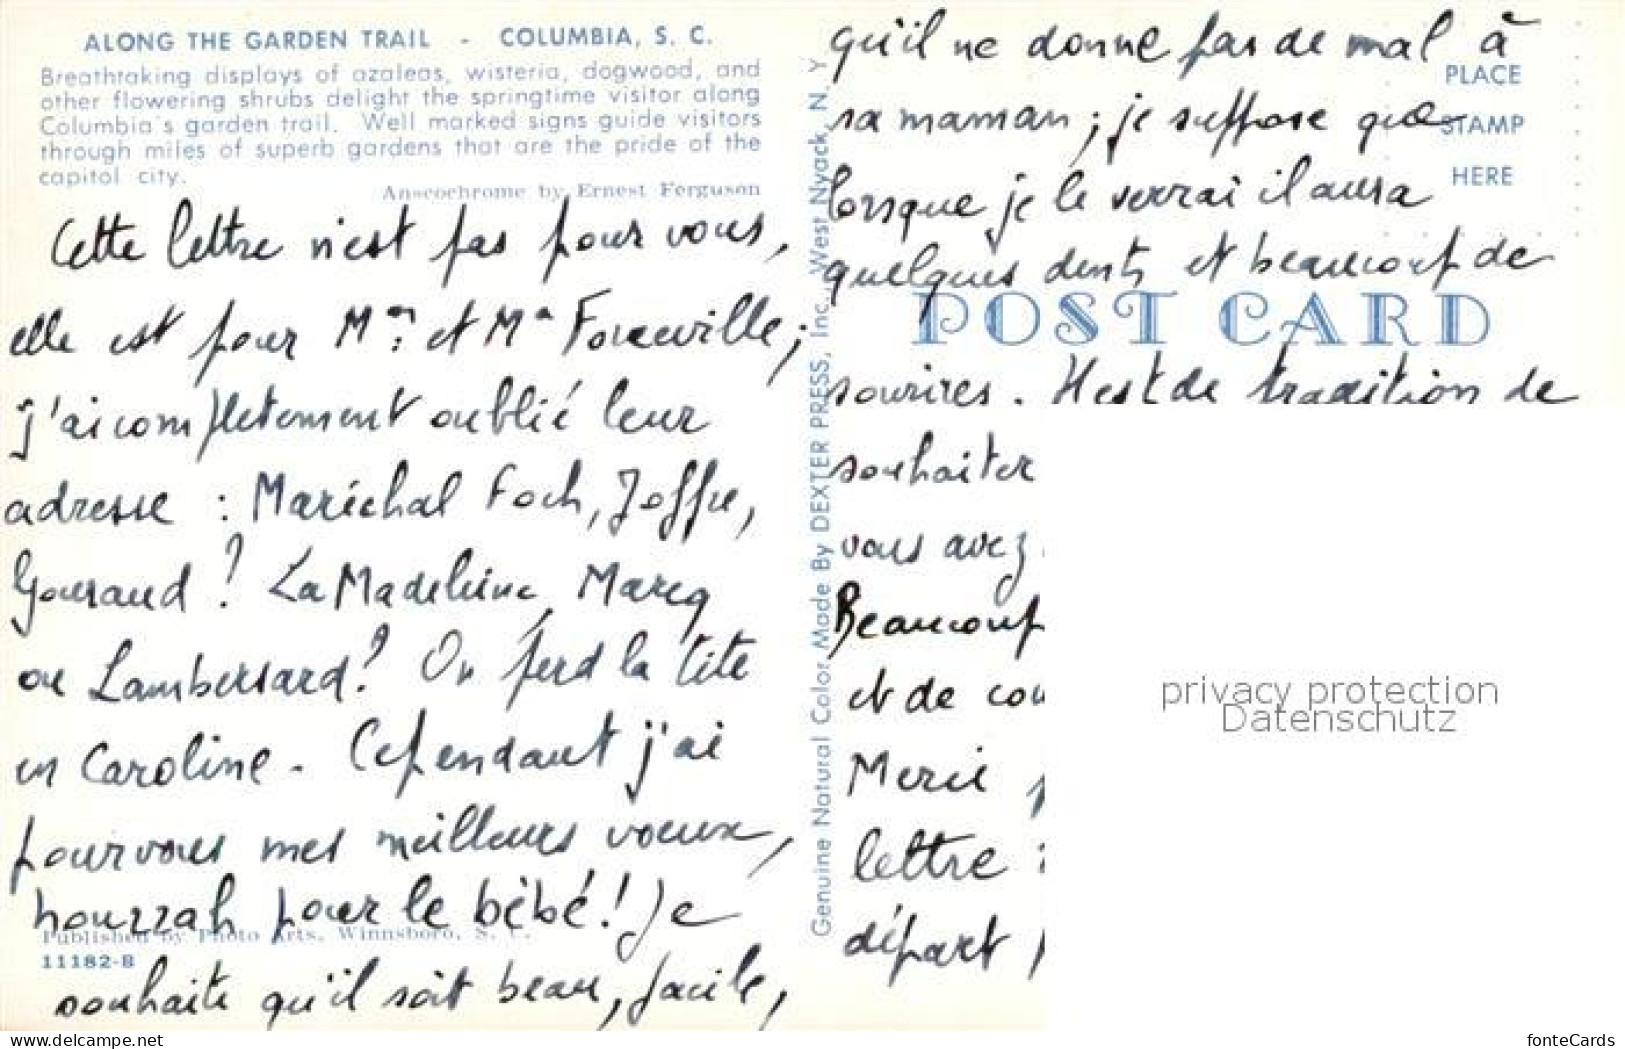 ALONG THE GARDEN TRAIL - COLUMBIA, S. C.
Breathtaking displays of azaleas, wisteria, dogwood, and
other flowering shrubs delight the springtime visitor along
Columbia's garden trail. Well marked signs guide visitors
through miles of superb gardens that are the pride of the
capitol city.
Anscochrome by Ernest Ferguson
Cette lettre n'est pas pour vous,
elle est pour Mr et Me
j'ai completement oublié leur
adresse : Maréchal Foch, Joffre,
Gouraud ? La Madeleine, Marcq
ou Lambersard ? On perd la tête
en Caroline - Cependant j'ai
pour vous mes meilleurs voeux,
hourrah pour le bébé ! Je
souhaite qu'il soit beau, facile,
Published by Photo Arts, Winnsboro, S. C.
11182-B
Genuine Natural Color Made By DEXTER PRESS, Inc., West Nyack, N. Y.
qu'il ne donne pas de mal à
sa maman ; je suppose que
lorsque je le verrai il aura
quelques dents et beaucoup de
sourires. Il est de tradition de
souhaiter
vous avez
Beaucoup
et de cou
Merci p
lettre
départ
PLACE
STAMP
HERE
POST CARD
privacy protection
Datenschutz
www.delcampe.net
fonteCards